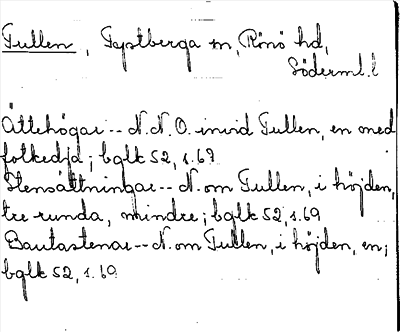 Tullen, Tystberga sn, Rönö hd,
Söderml. l
Ättehögar -- N.N.O. invid Tullen, en med
fotkedja; bglk 52, s. 69
Stensättningar -- N. om Tullen, i höjden,
tre runda, mindre; bglk 52, s. 69
Bautastenar -- N. om Tullen, i höjden, en;
bglk 52, s. 69